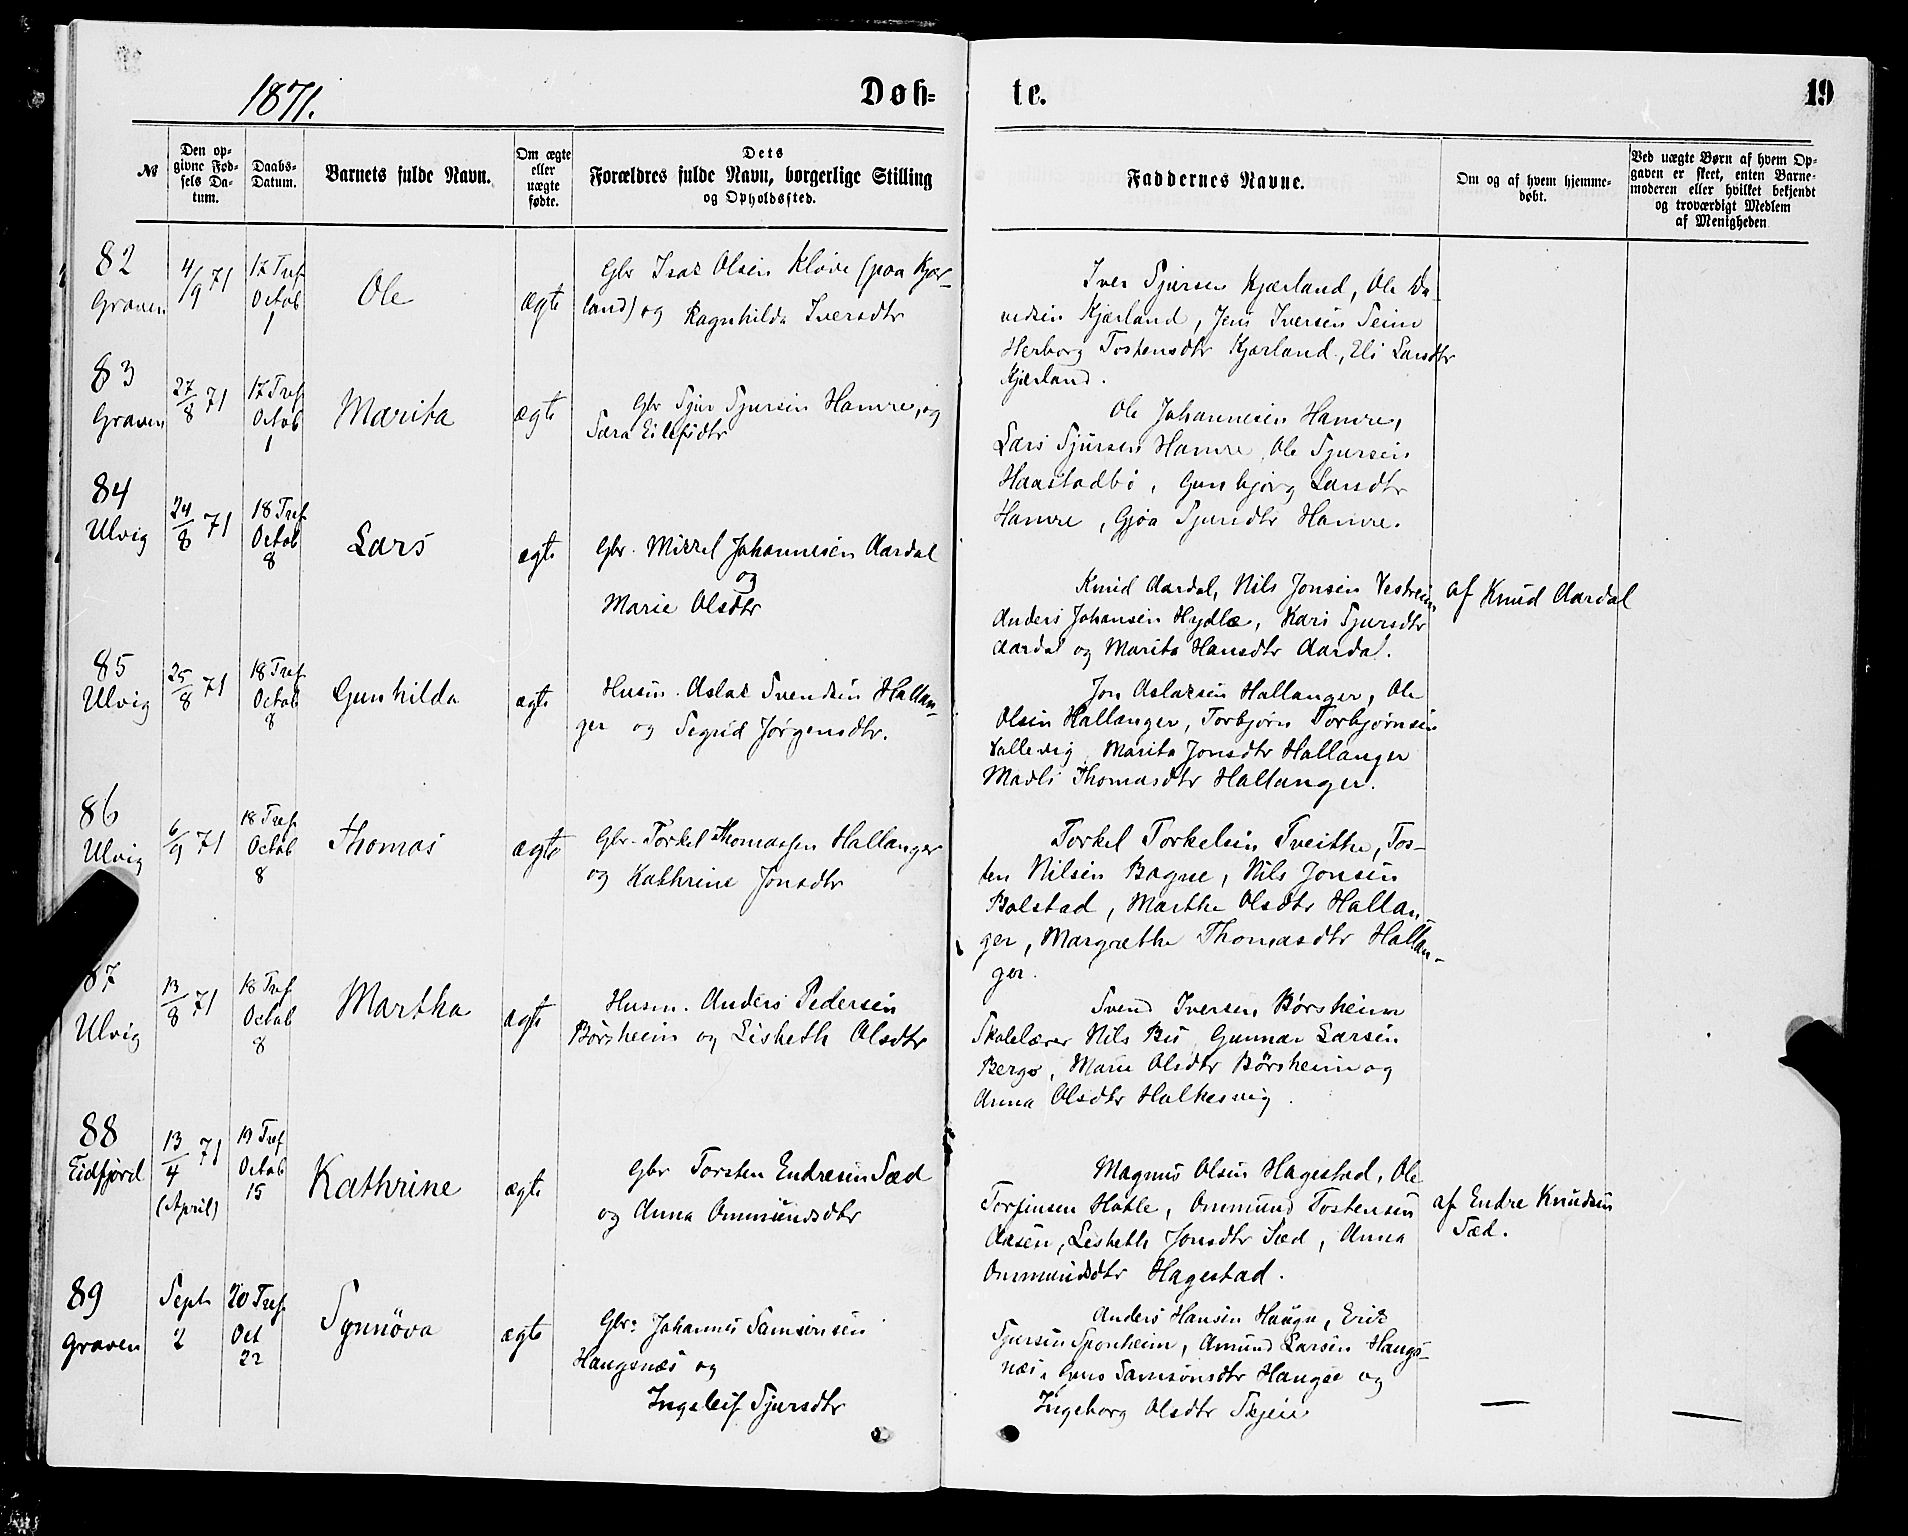 1871.
Døb-
te.
19
№
Den op-
givne Fød-
sels Da-
tum.
Daabs-
Datum.
Barnets fulde Navn.
Om ægte
eller
uægte
fødte.
Dets
Forældres fulde Navn, borgerlige Stilling
og Opholdssted.
Faddernes Navne.
Om og af hvem hjemme-
døbt.
Ved uægte Børn af hvem Op-
gaven er skeet, enten Barne-
moderen eller hvilket bekjendt
og troværdigt Medlem
af Menigheden
82
Graven
4/9 71
17 Tref
Octob
1
Ole
ægte
Gbr Isak Olsen Kløve (paa Kjær-
land) og Ragnhilda Iversdtr
Iver Sjursen Kjærland, Ole Da-
vidsen Kjærland, Jens Iversen Seim
Herborg Tostensdtr Kjærland, Eli Larsdtr
Kjærland.
83
Graven
27/8 71
17 Tref
Octob
1
Marita
ægte
Gbr Sjur Sjursen Hamre, og
Sara Eilefsdtr
Ole Johannesen Hamre,
Lars Sjursen Hamre, Ole Sjursen
Haastadbø, Gunbjørg Larsdtr
Hamre, Gjøa Sjursdtr Hamre.
84
Ulvig
24/8 71
18 Tref
Octob
8
Lars
ægte
Gbr. Mikkel Johannesen Aardal
og
Marie Olsdtr
Knud Aardal, Nils Jonsen Vestreim
Anders Johansen Hydle, Kari Sjursdtr
Aardal og Marita Hansdtr Aardal.
af Knud Aardal
85
Ulvig
25/8 71
18 Tref
Octob
8
Gunhilda
ægte
Husm. Aslak Svendsen Hallan-
ger og Sigrid Jørgensdtr.
Jon Aslaksen Hallanger, Ole
Olsen Hallanger, Torbjørn Torbjørnsen
Vallevig, Marita Jonsdtr Hallanger
Madli Thomasdtr Hallanger.
86
Ulvig
6/9 71
18 Tref
Octob
8
Thomas
ægte
Gbr. Torkel Thomassen Hallanger
og Kathrine Jonsdtr
Torkel Torkelsen Tveithe, Tos-
ten Nilsen Bagne, Nils Jonsen
Bolstad, Marthe Olsdtr Hallan-
ger, Margrethe Thomasdtr Hallan-
ger.
87
Ulvig
13/8 71
18 Tref
Octob
8
Martha
ægte
Husm. Anders Pedersen
Børsheim og Lisbeth Olsdtr
Svend Iversen Børsheim
Skolelærer Nils Bu, Gunnar Larsen
Berge, Marie Olsdtr Børsheim og
Anna Olsdtr Holkesvig.
88
Eidfjord
13/4 71
(April)
19 Tref
Octob
15
Kathrine
ægte
Gbr Torsten Endresen Sæd
og Anna Ommundsdtr
Magnus Olsen Hagestad, Ole
Torfinsen Hotle, Ommund Tostensen
Aasen, Lisbeth Jonsdtr Sæd, Anna
Ommundsdtr Hagestad.
af Endre Knudsen
Sæd.
89
Graven
Sept
2
20 Tref
Oct
22
Synnøva
ægte
Gbr: Johannes Samsonsen
Haugsnæs og
Ingeleif Sjursdtr
Anders Hansen Haugse, Erik
Sjursen Sponheim, Amund Larsen Haugs-
næs, Samsonsdtr Haugse og
Ingeborg Olsdtr Skjeie